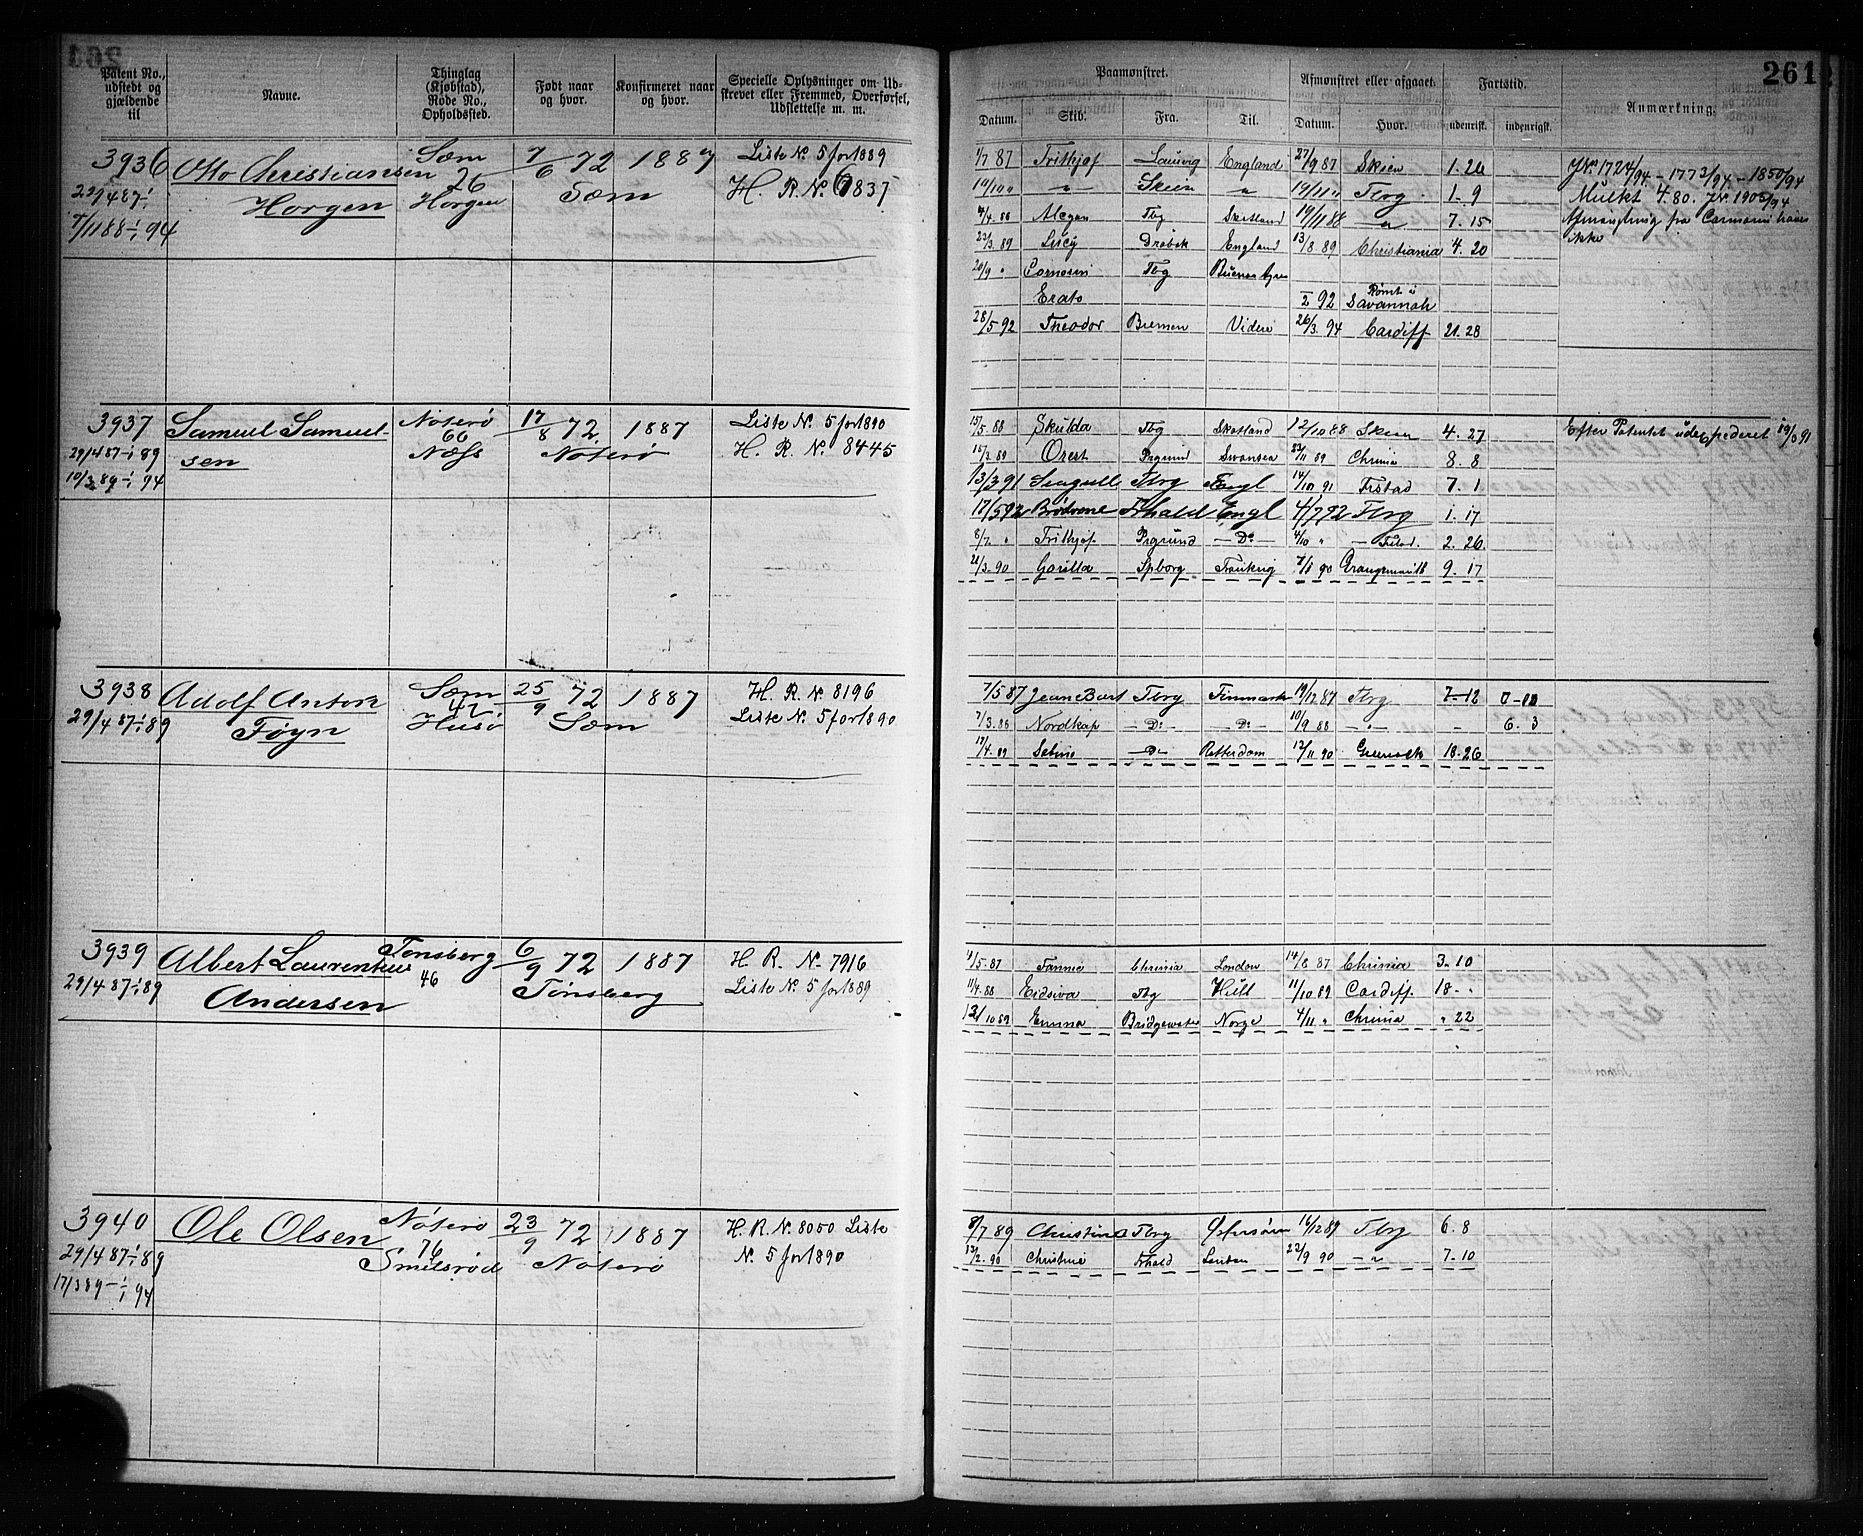 261
Patent No., udstedt og gjældende til
Navne.
Thinglag (Kjøbstad), Rode No., Opholdssted.
Født naar og hvor.
Konfirmeret naar og hvor.
Specielle Oplysninger om Udskrevet eller Fremmed, Overførsel, Udslettelse m. m.
Paamønstret.
Afmønstret eller afgaaet.
Fartstid.
Anmærkning.
Datum.
Skib.
Fra.
Til.
Datum.
Hvor.
udenrisk.
indenrigsk.
3936 Otto Christiansen Sæm 7/6 72 1887 Liste No. 5 for 1889
29/4 87 Horgen 76 Horgen Sæm H. R. No. 837
7/11 88-1/1 94
1/7 87 Frithjof Laurvig England 27/9 87 Skien 1. 26
19/10 " " Skien " 19/11 " Tbrg 1-9
4/4 88 Alegan Tbg Skotland 19/11 88 " 7. 15
23/3 89 Lucy Drøbak England 13/8 89 Christiania 4. 20
20/9 " Tbg Buenos Ayres
Erato 2 92 Rømt i Savannah
28/5 92 Theodor Bremen Videre 26/3. 94 Cardiff 21. 28
Mulkt 4.80.
ikke
3937 Samuel Samuelsen Nøterø 17/8 72 1887 Liste No. 5 for 1890
29/4 87-1/1 89 66 Næss Nøterø H. R. No. 8445
10/3 89-1/1 94
15/5. 88 Skulda Tbg Skotland 12/10 88 Skien 4. 27
15/3. 89 Orest Prgrund Swansea 23/11 89 Chrnia 8. 8
13/3 91 Seagull Tbrg Engl 14/10 91 Frstad 7. 1
17/5 92 Brødrene Frhald Engl 4/7 92 Tbrg 1. 17
8/7. " Frithjof Prgrund - Do - 4/10 " - Frstad. 2. 26
21/3. 90 Gorilla Spborg Frankrig 7/1 90 Grangemouth 9. 17
Efter Patentet
3938 Adolf Anton Føyn Sæm 25/9 72 1887 H. R. No. 8196
29/4 87-1/1 89 42 Husø Sæm Liste No. 5 for 1890
7/5 87 Jean Bart Tbrg Finmark 19/12 87 Tbrg 7-12
7/3. 88 Nordkap - Do - - Do - 10/9 88 6. 3
17/4. 89 - Do - Rotterdam 12/11 90 Greenock 18-26
3939 Albert Laurentius Andersen Tønsberg 46 6/9 72 1887 H. R. No. 7916
29/4 87-1/1 89 Tønsberg Liste No. 5 for 1889
4/5. 87 Fanny Chrnia London 14/8 87 Chrnia 3-10
11/4. 88 Eidsiva Tbg Hull 11/10 89 Cardiff. 18 - "
12/10 89 Emma Bridgewater Norge 4/11 " Chrnia " 22
3940 Ole Olsen Nøterø 23/9 72 1887 H. R. No. 8050 Liste
29/4 87-1/1 89 76 Smidsrød Nøterø No. 5 for 1890
17/3 89-1/1 94
8/7 89 Christine Tbrg 16/12 89 Tbrg 6. 8
12/2. 90 Christine Frhald 22/9 90 - " 7. 10